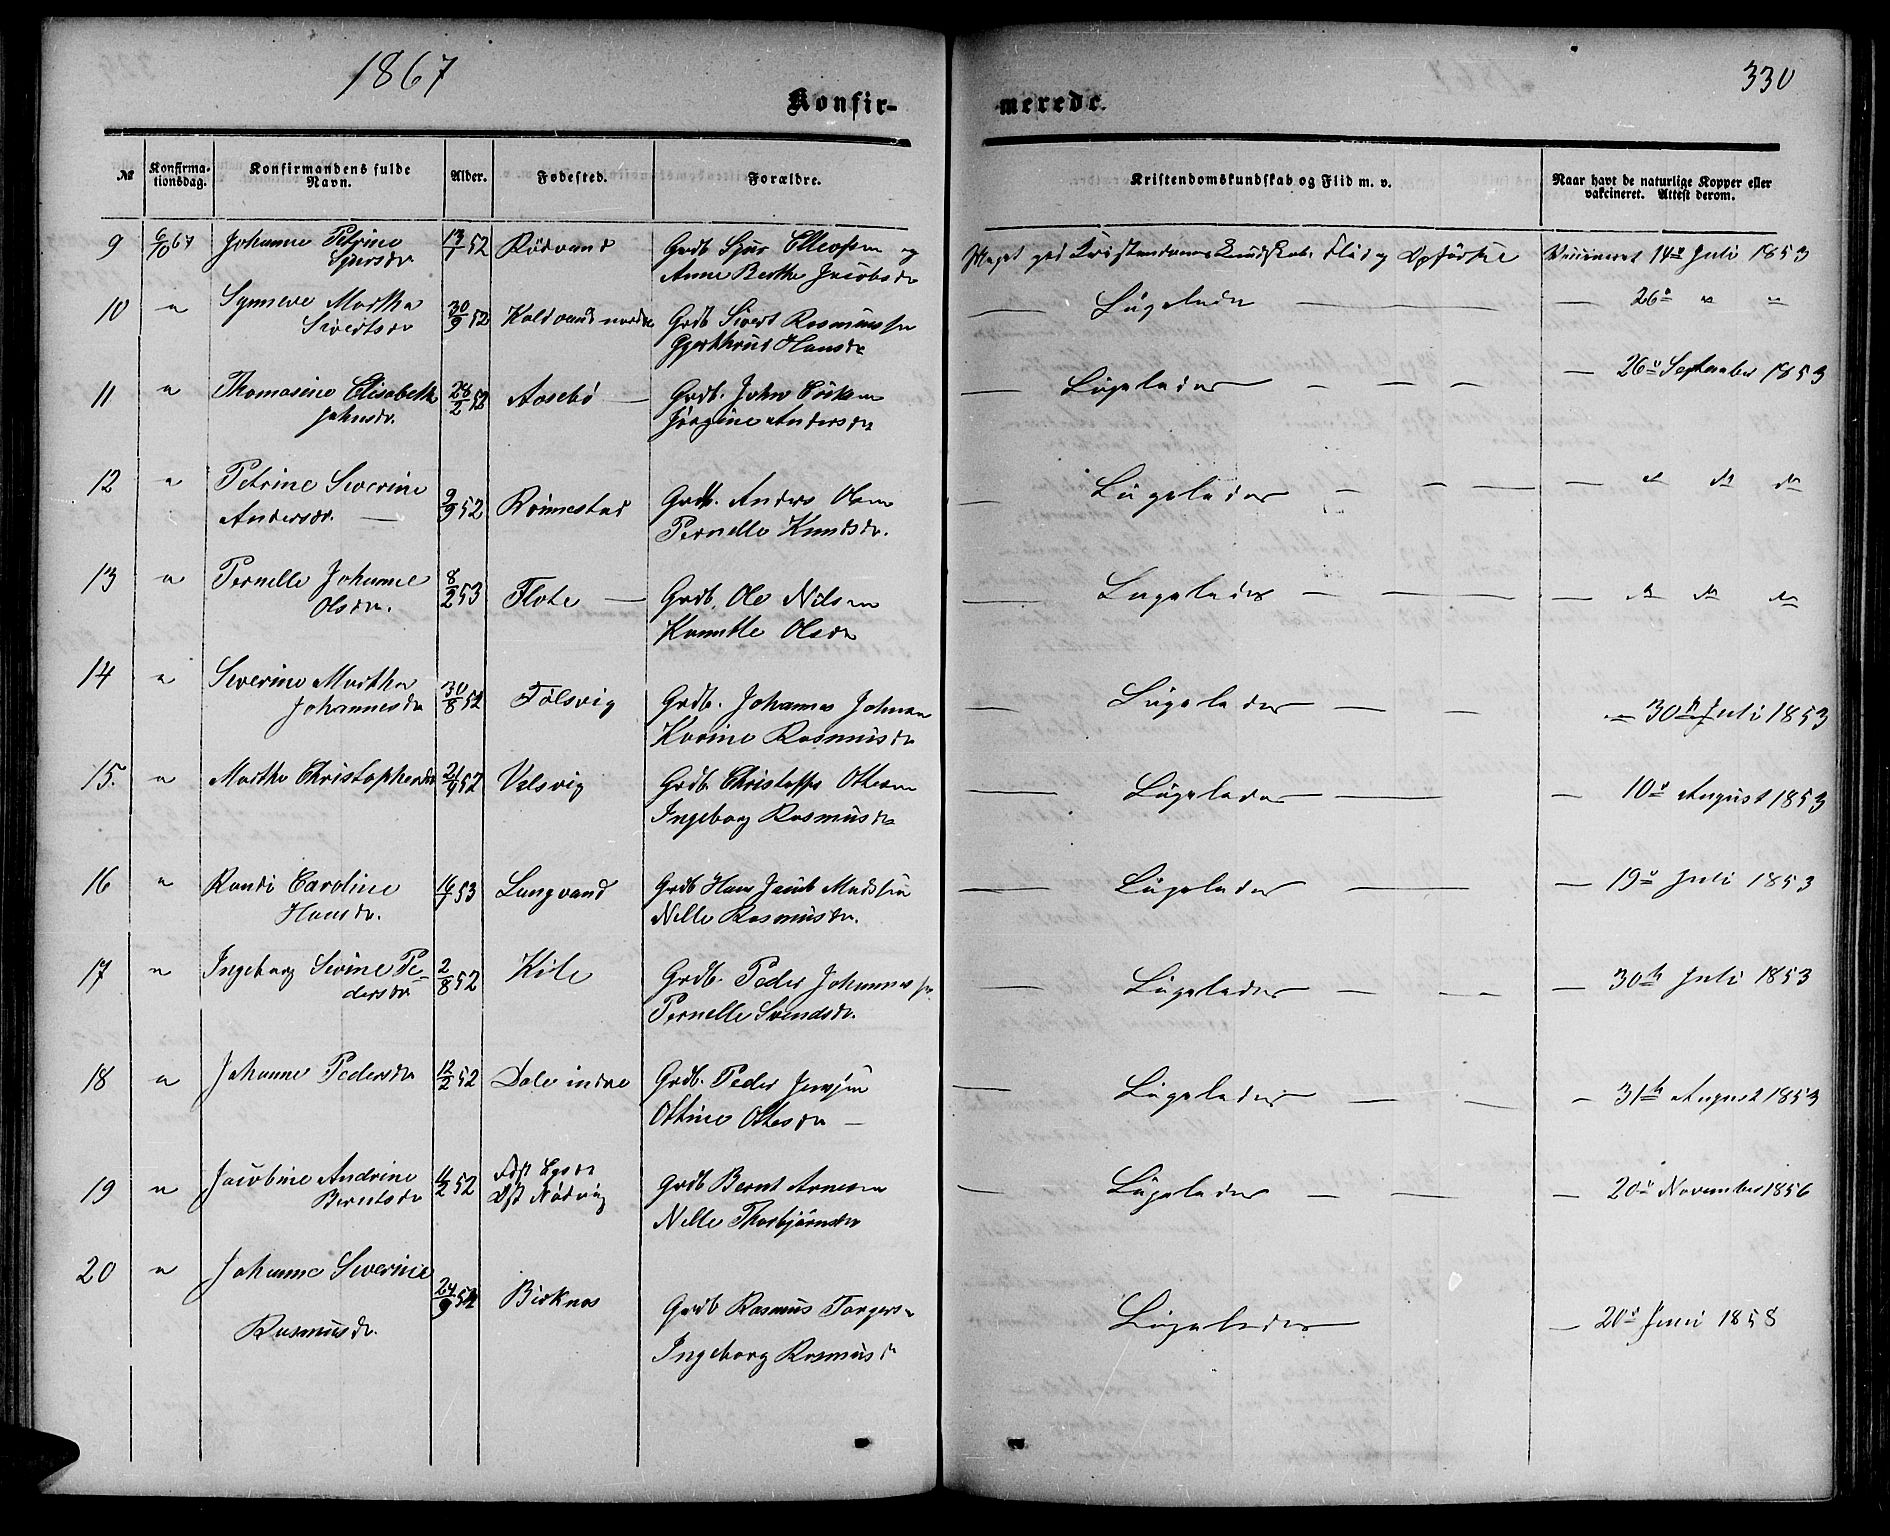 1867
330
Konfir-
merede.
№
Konfirma-
tionsdag.
Konfirmandens fulde
Navn.
Alder.
Fødested.
Forældre.
Kristendomskundskab og Flid m. v.
Naar havt de naturlige Kopper eller
vakcineret. Attest derom.
9 6/10 67 Johanne Petrine 13/7 52 Rødvand Grdb Sjur Ellevsen og Meget god Kristendoms Kundskab. Flid og Opførsel Vaccineret 14de Juli 1853
Sjursdr Anne Berthe Jacobsdr
10 " Synneve Martha 30/9 52 Kaldvand nordre Grdb Sivert Rasmussen — Ligeledes — — 26de " "
Sivertsdr Gjerthrud Hansdr
11 " Thomasine Elisabeth 28/2 52 Aasebø — Grdb. John — Ligeledes — — — — 26de September 1853
Johnsdr. Jørgine Andersdr
12 " Petrine Severine 9/9 52 Rønnestad Grdb. Anders Olsen — Ligeledes — — — — " " "
Andersdr. — Pernelle Knudsdr.
13 " Pernelle Johanne 8/2 53 Flote — Grdb. Ole Nilsen — Ligeledes — — — — " " "
Olsdr. Olsdr
14 " Severine Martha 30/8 52 Følsvig Grdb. Johannes Johnsen — Ligeledes — — — 30te Juli 1853
Johannesdr Karine Rasmusdr
15. " Marthe Christophersdr 52 Velsvig Grdb. Christoffer Ottesen — Ligeledes — — 10de August 1853
Ingeborg Rasmusdr
16 " Randi Caroline 16/7 53 Langvand Grdb Hans Jacob Madssen — Ligeledes — — — 19de Juli 1853
Hansdr. Nelle Rasmusdr.
17 " Ingeborg Sevine Pe- 2/8 52 Kile Grdb. Peder Johannessen — Ligeledes — — — — 30te Juli 1853
dersdr Pernelle Svendsdr.
18 " Johanne Pedersdr 12/2 52 Dale indre Grdb. Peder Jenssen — Ligeledes — — — 31te August 1853
Ottine Ottesdr —
19 " Jacobine Andrine 11/2 52 Fdst Grdb Bernt Arnesen — Ligeledes — — — 20de November 1856
Berntsdr Opst Nødvig Nelle Thorbjørnsdr
20 " Johanne Severine 24/9 52 Birknes Grdb Rasmus Torgers. Ligeledes — 20de Juni 1858
Rasmusdr. Ingeborg Rasmusdr